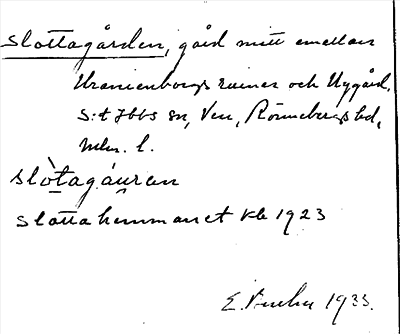 Slottagården, gård mitt emellan
Uranienborgs ruiner och Nygård,
S:t Ibbs sn, Ven, Rönnebergs hd,
Mlm. l.
slò̱tagáu̯ran
Slottahemmanet kb 1923
E. 1933.